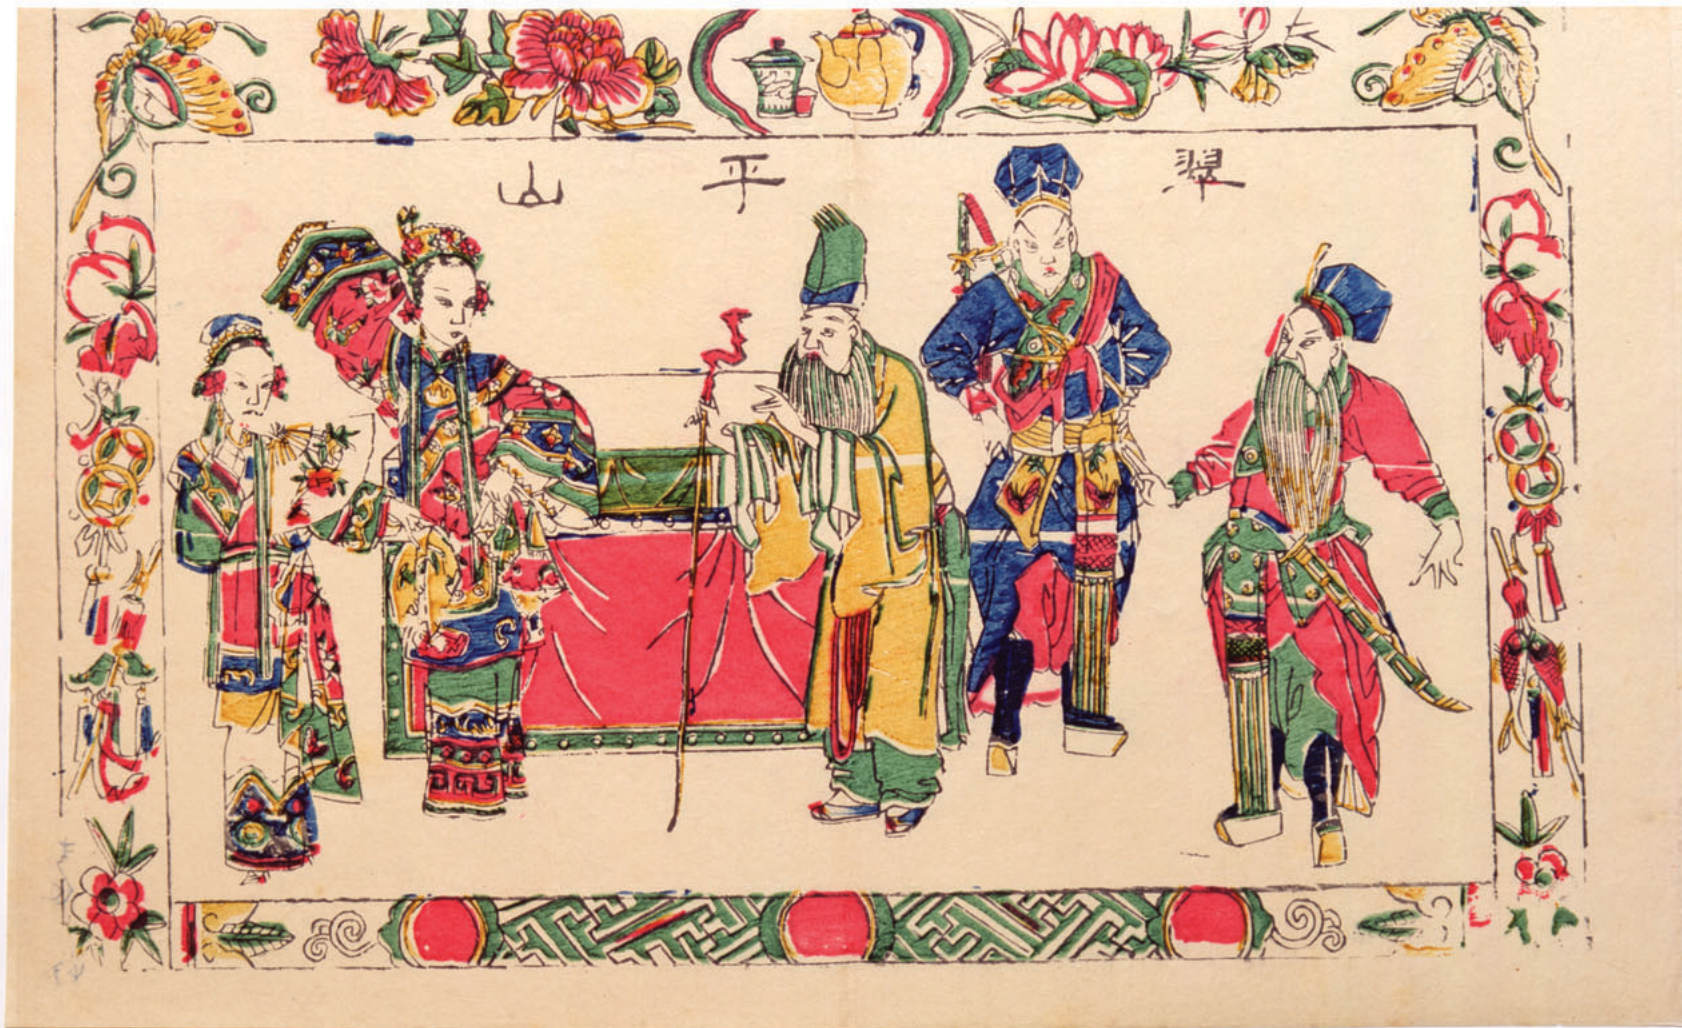 翠平山